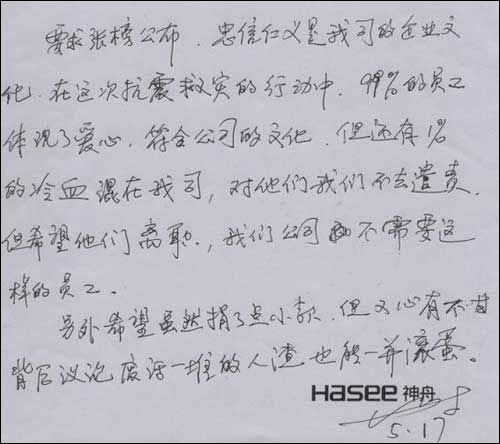 要求张榜公布．忠信仁义是我司的企业文
化．在这次抗震救灾的行动中．99%的员工
体现了爱心，符合公司的文化．但还有1%
的冷血混在我司，对他们我们不去谴责．
但希望他们离职．，我们公司不需要这
样的员工．
另外希望虽然捐了点小款．但又心有不甘
背后议论废话一堆的人渣也能一并滚蛋。
Hasee 神舟
5.17